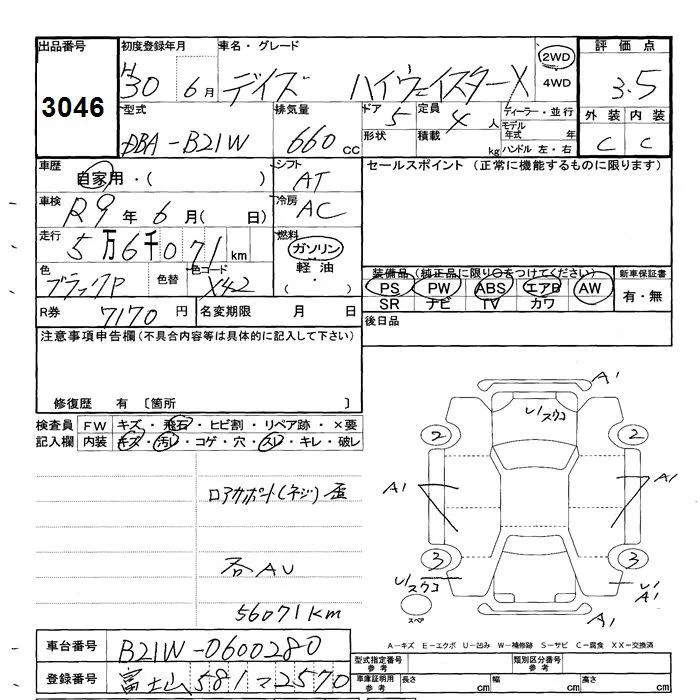 出品番号 初度登録年月 車名・グレード 評価点
3046 H30 年 6月 デイズ ハイウェイスターX 2WD 4WD 3.5
型式 排気量 ドア 5 定員 4人 ディーラー・並行 外装 内装
DBA-B21W 660cc 形状 積載 kg モデル年式 年 ハンドル 左・右 C C
車歴 シフト セールスポイント (正常に機能するものに限ります)
自家用・( ) AT
車検 R9年 6月( 日) 冷房 AC
走行 5万6千071km 燃料 ガソリン
色 ブラックP 色替 色コード X42 軽油 ( ・ )
装備品(純正品に限り○をつけてください) 新車保証書
PS PW ABS エアB AW 有・無
SR ナビ TV カワ
R券 7170円 名変期限 月 日 後日品
注意事項申告欄(不具合内容等は具体的に記入して下さい)
修復歴 有 〔箇所 〕
検査員 FW キズ・飛石・ヒビ割・リペア跡・×要
記入欄 内装 キズ・汚レ・コゲ・穴・スレ・キレ・破レ
ロアサポート(ネジ)歪
否AU
56071km
A1
U/スウコ
2 2
A1 A1
3 3
U/スウコ U/A1
スペア
A1
A-キズ E-エクボ U-凹み W-補修跡 S-サビ C-腐食 XX-交換済
車台番号 B21W-0600280
登録番号 富士山581マ2570
型式指定番号 参考 類別区分番号 参考
車庫証明用 参考 長さ cm 幅 cm 高さ cm